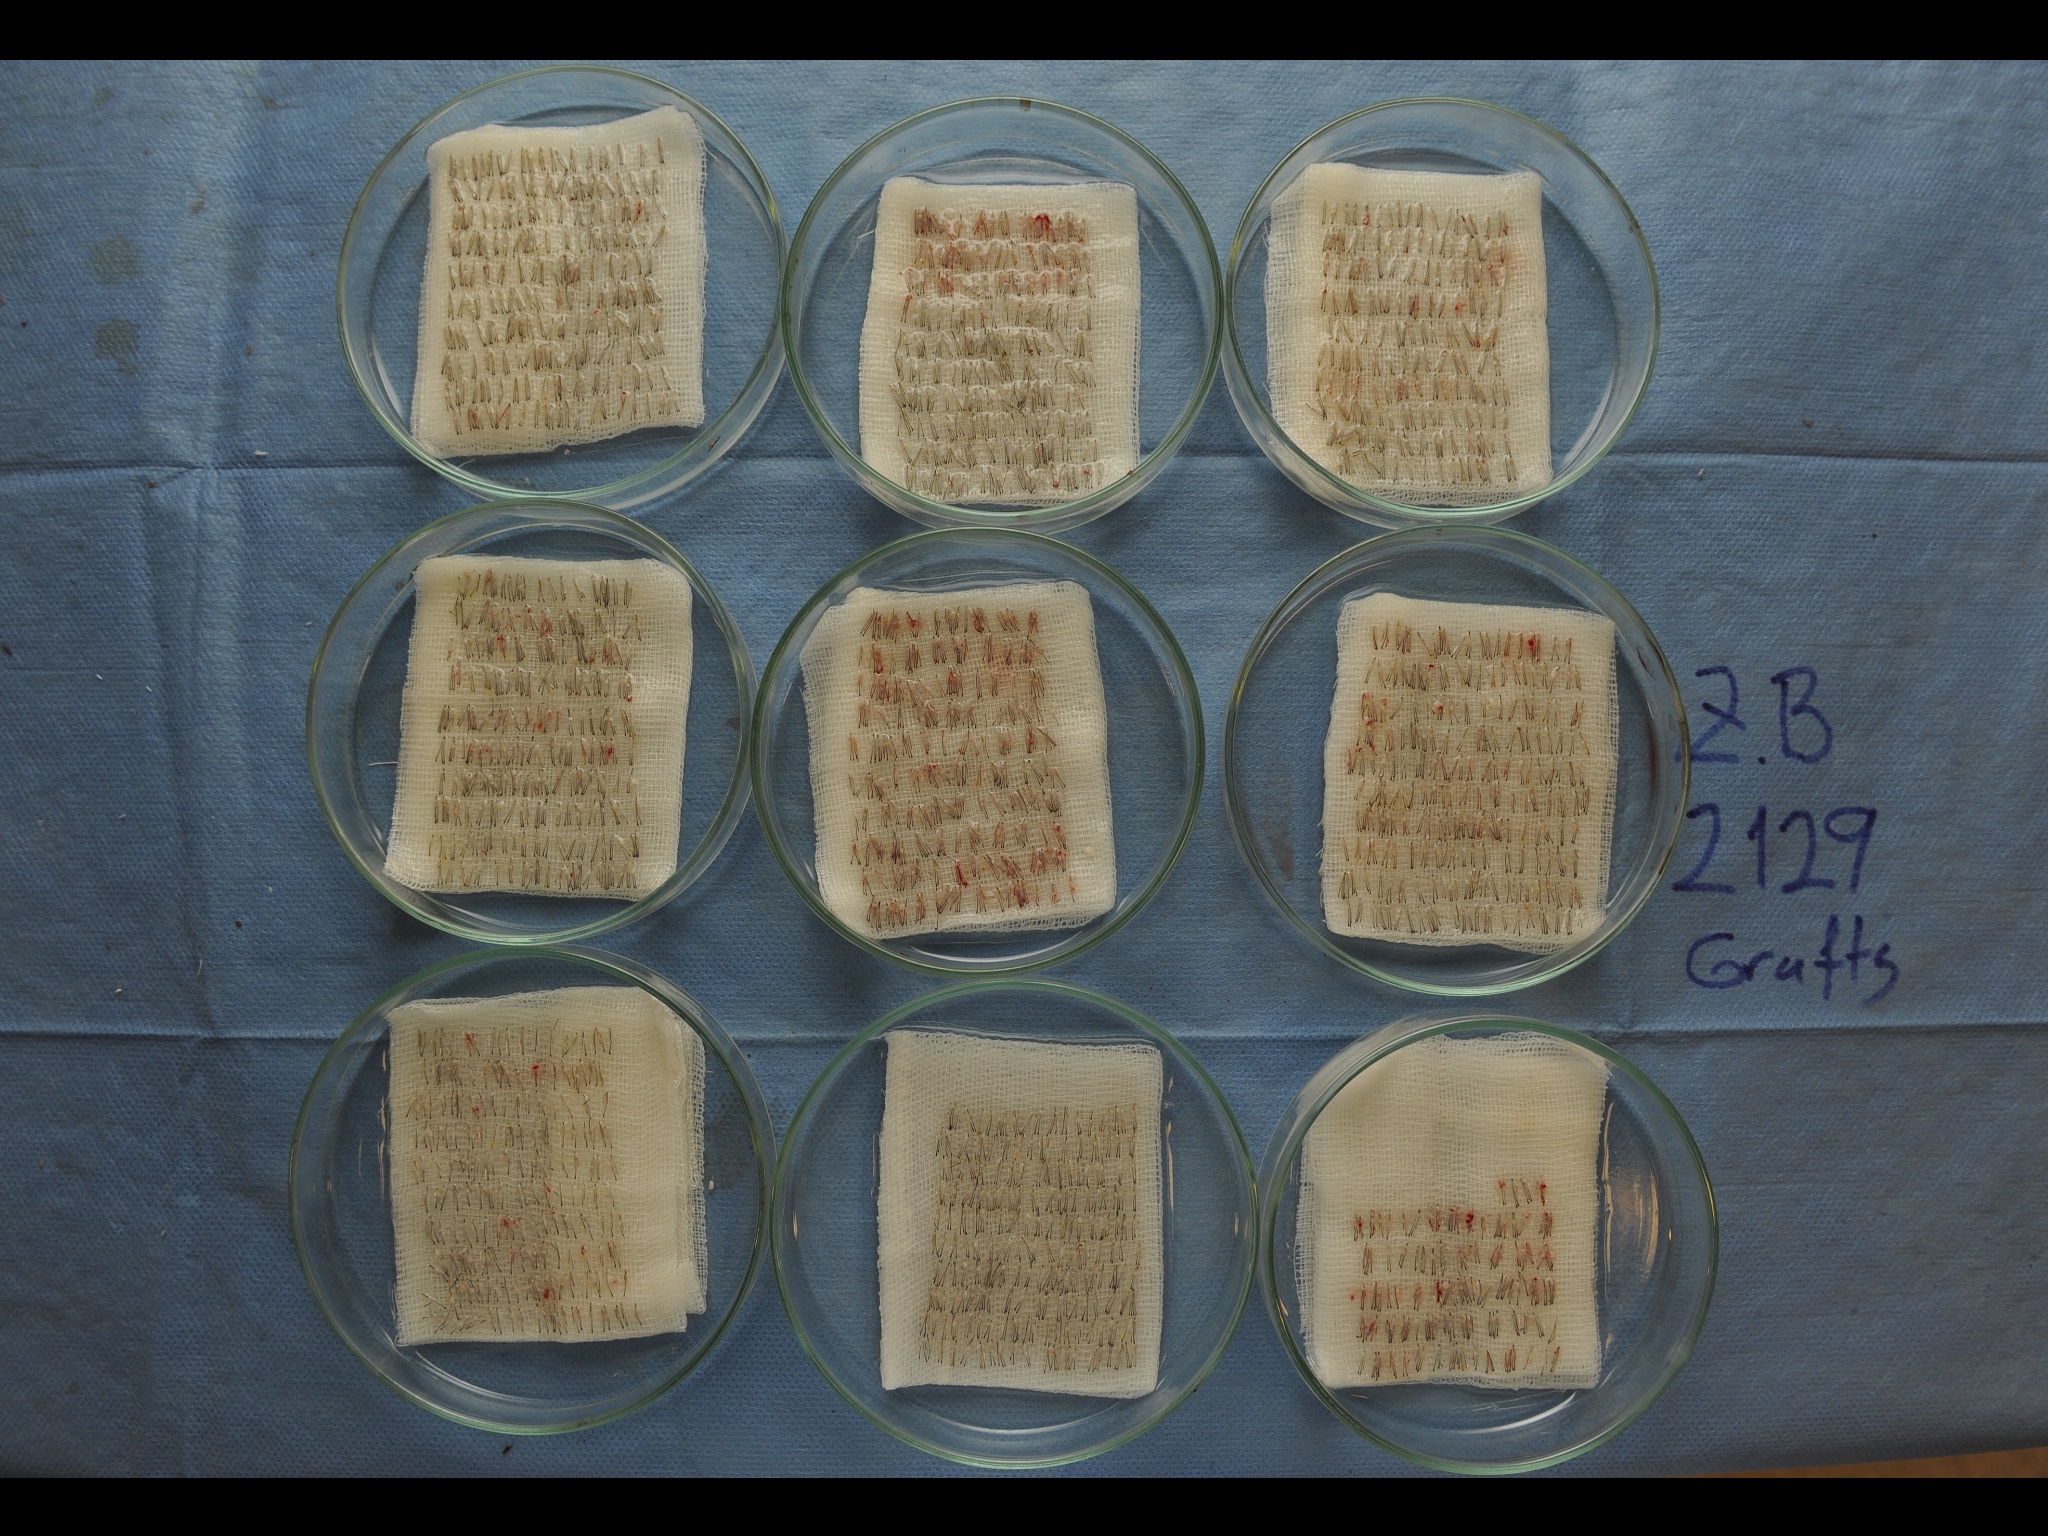 Z.B
2129
Grafts